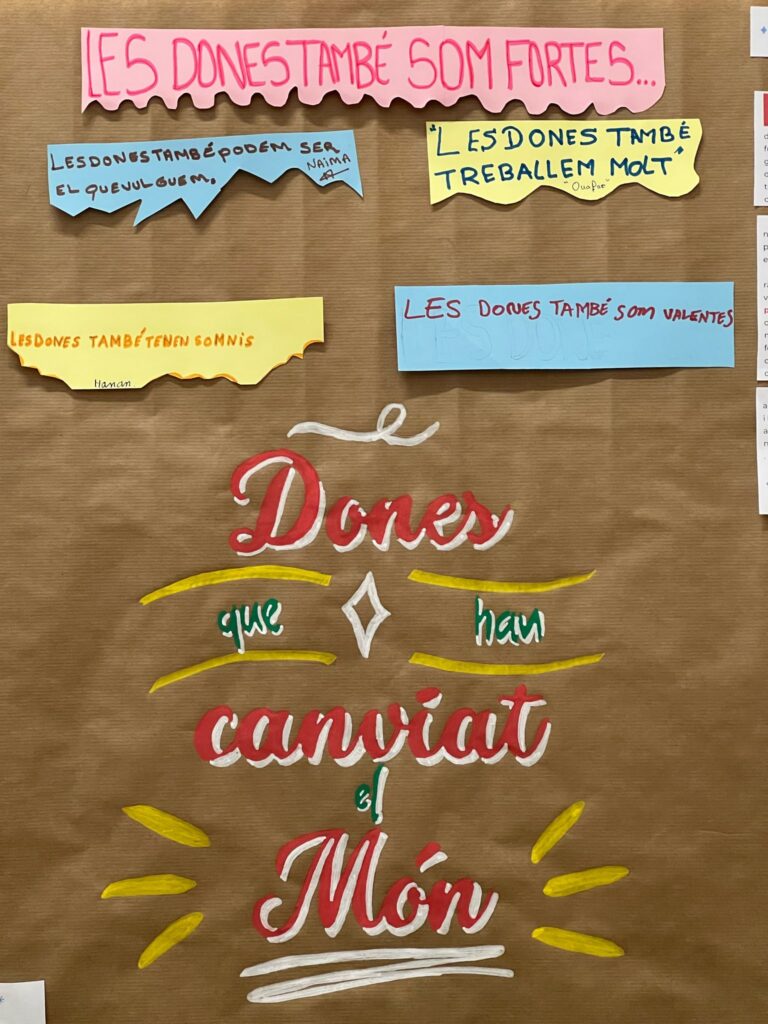 LES DONES TAMBÉ SOM FORTES...
LES DONES TAMBÉ PODEM SER
EL QUE VULGUEM.
NAIMA
"LES DONES TAMBÉ
TREBALLEM MOLT"
LES DONES TAMBÉ TENEN SOMNIS
Hanan.
LES DONES TAMBÉ SOM VALENTES
LES DONE
Dones
que han
canviat
el
Món